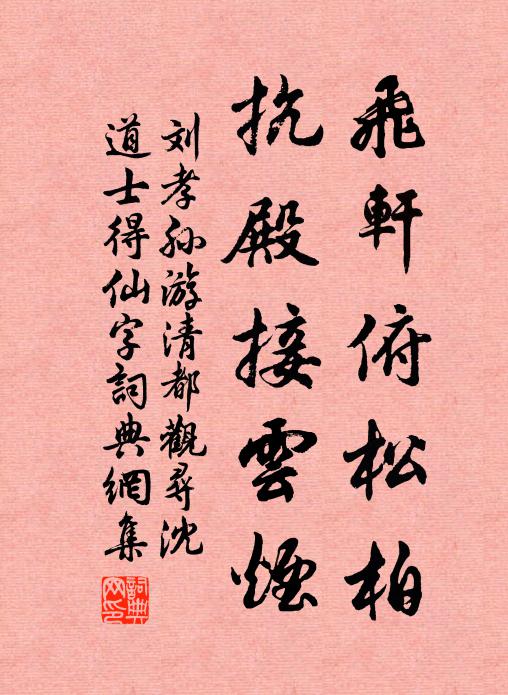 飛軒俯松柏
抗殿接雲煙
刘孝孙游清都觀尋沈
道士得仙字詞典網集
詞典
网印